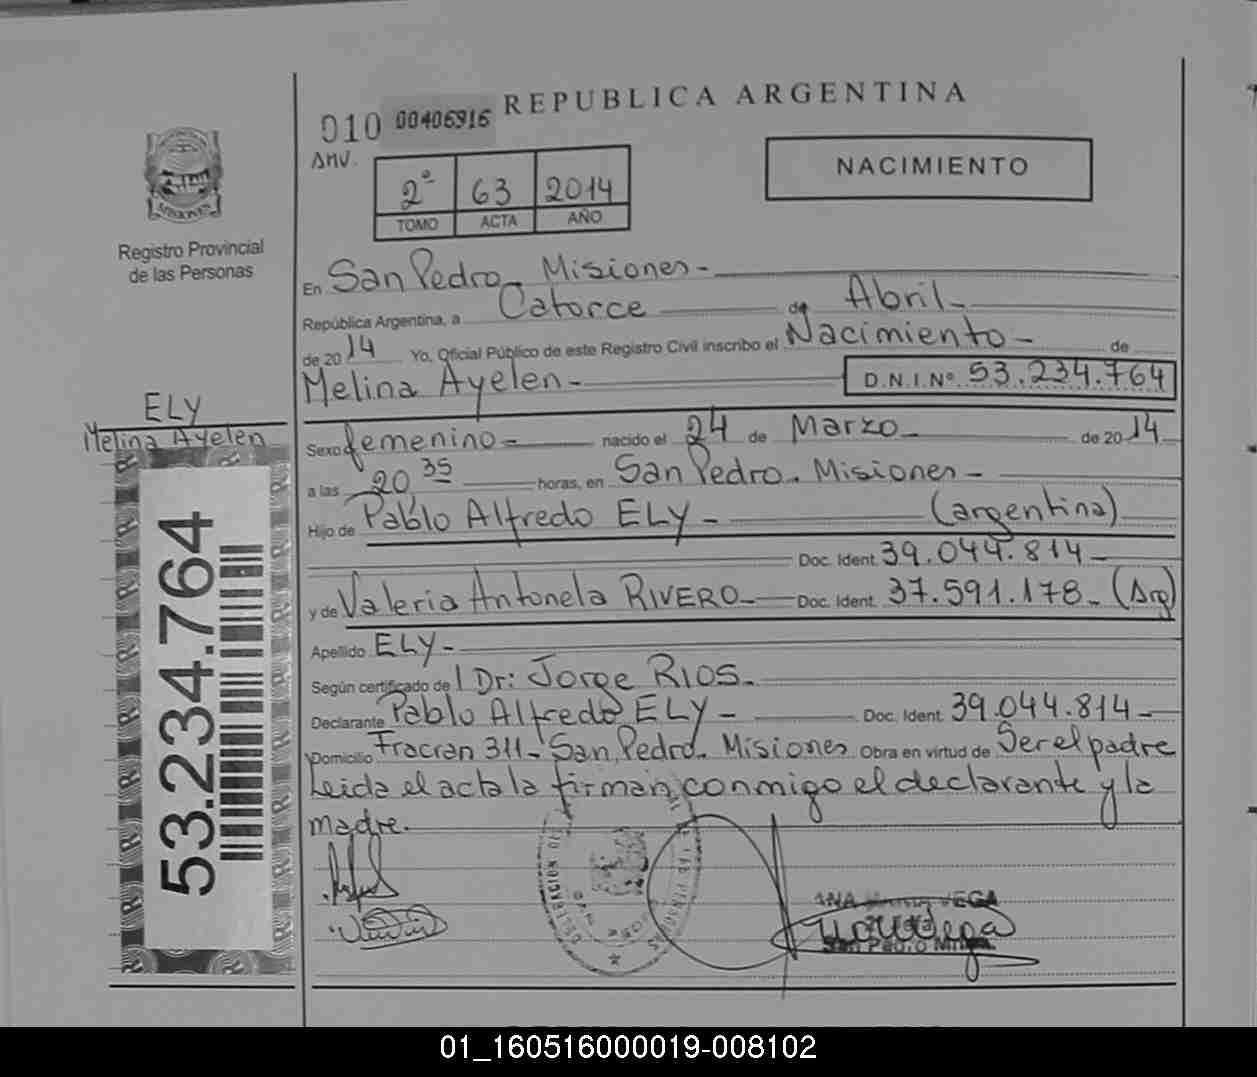 REPUBLICA ARGENTINA
010 00406916
ANV.
2º 63 2014
TOMO ACTA AÑO
NACIMIENTO
MISIONES
Registro Provincial
de las Personas
En San Pedro - Misiones -
República Argentina, a Catorce de Abril -
de 2014 Yo, Oficial Público de este Registro Civil inscribo el Nacimiento - de
Melina Ayelen - D.N.I.Nº 53.234.764
ELY
Melina Ayelen
Sexo femenino - nacido el 24 de Marzo - de 2014
a las 20 35 horas, en San Pedro - Misiones -
Hijo de Pablo Alfredo ELY - (argentina)
Doc. Ident. 39.044.814 -
y de Valeria Antonela RIVERO - Doc. Ident. 37.591.178 - (Arg)
Apellido ELY -
Según certificado de l Dr: Jorge RIOS -
Declarante Pablo Alfredo ELY - Doc. Ident. 39.044.814 -
Domicilio Fracran 311 - San Pedro - Misiones Obra en virtud de Ser el padre
Leida el acta la firman conmigo el declarante y la
madre.
53.234.764
ANA MARIA VEGA
San Pedro Mnes.
01_160516000019-008102